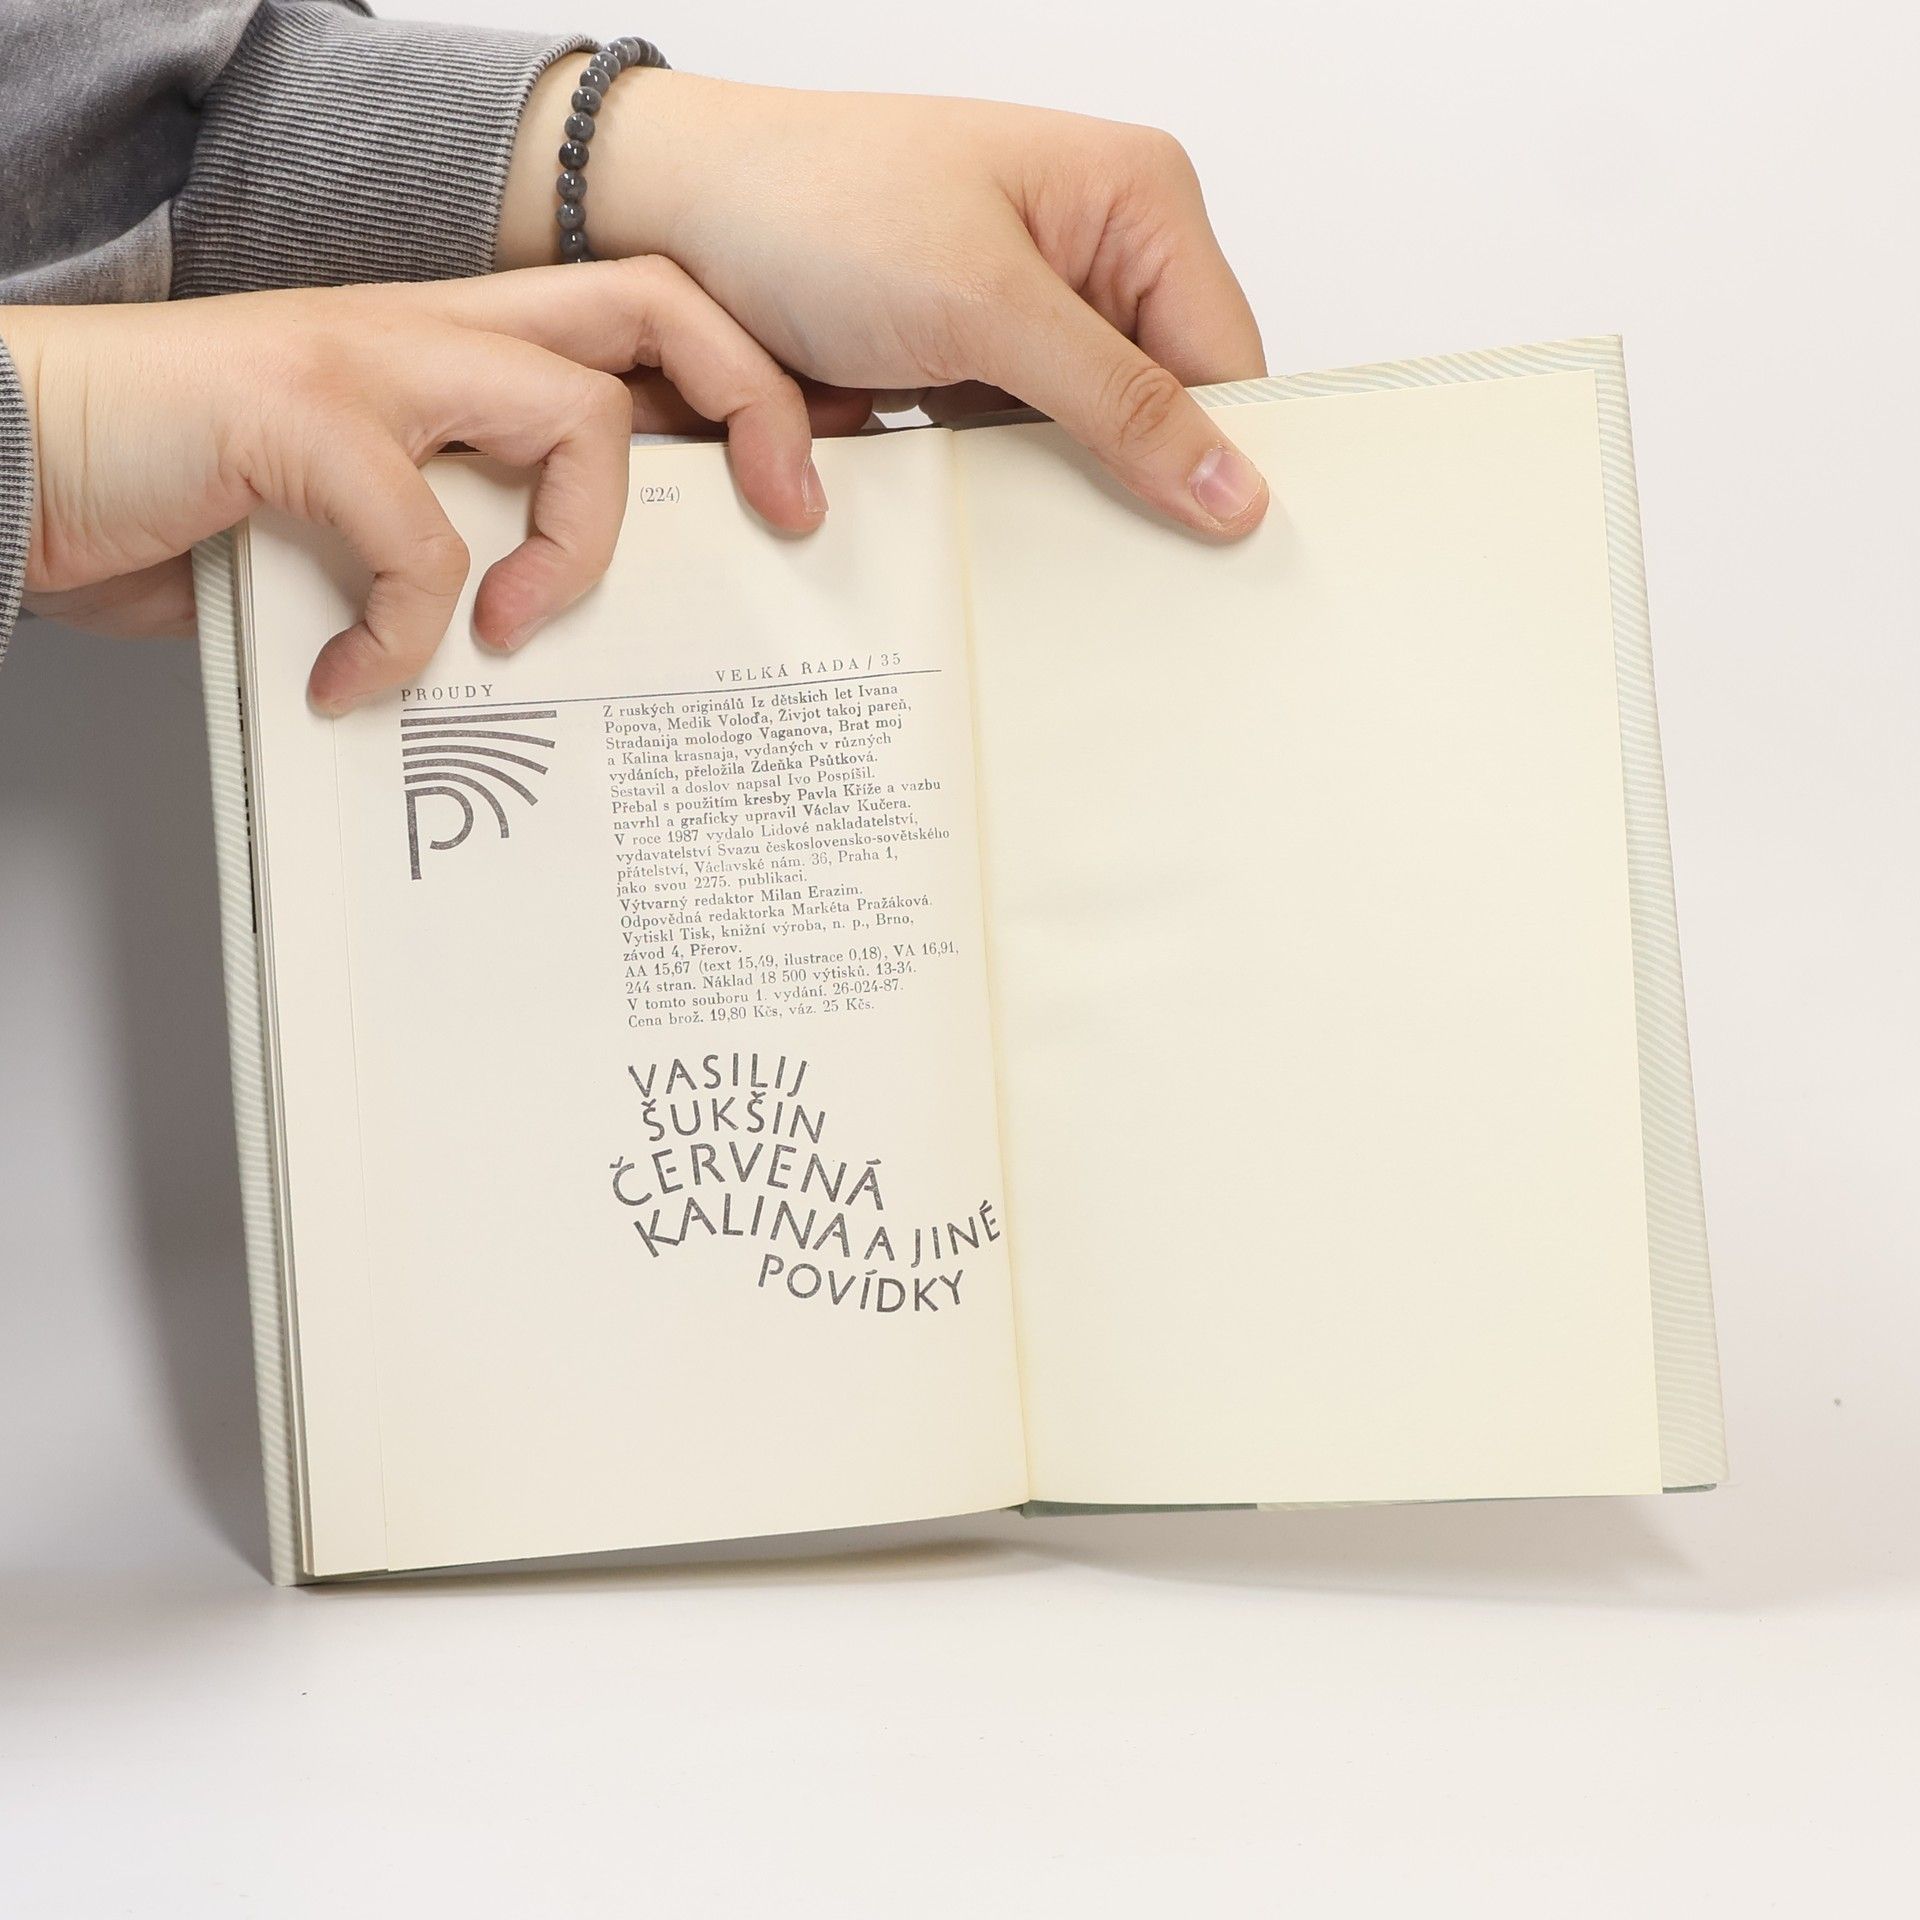 (224)
PROUDY
VELKÁ ŘADA / 35
Z ruských originálů Iz dětskich let Ivana
Popova, Medik Voloďa, Živjot takoj pareň,
Stradanija molodogo Vaganova, Brat moj
a Kalina krasnaja, vydaných v různých
vydáních, přeložila Zdeňka Psůtková.
Sestavil a doslov napsal Ivo Pospíšil.
Přebal s použitím kresby Pavla Kříže a vazbu
navrhl a graficky upravil Václav Kučera.
V roce 1987 vydalo Lidové nakladatelství,
vydavatelství Svazu československo-sovětského
přátelství, Václavské nám. 36, Praha 1,
jako svou 2275. publikaci.
Výtvarný redaktor Milan Erazim.
Odpovědná redaktorka Markéta Pražáková.
Vytiskl Tisk, knižní výroba, n. p., Brno,
závod 4, Přerov.
AA 15,67 (text 15,49, ilustrace 0,18), VA 16,91,
244 stran. Náklad 18 500 výtisků. 13-34.
V tomto souboru 1. vydání. 26-024-87.
Cena brož. 19,80 Kčs, váz. 25 Kčs.
VASILIJ
ŠUKŠIN
ČERVENÁ
KALINA A JINÉ
POVÍDKY